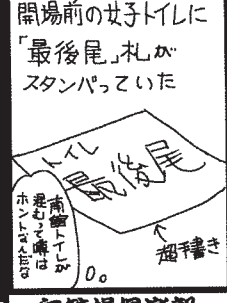 開場前の女子トイレに
「最後尾」札が
スタンバっていた
トイレ
最後尾
超手書き
南館トイレが
混むって噂は
ホントなんだな